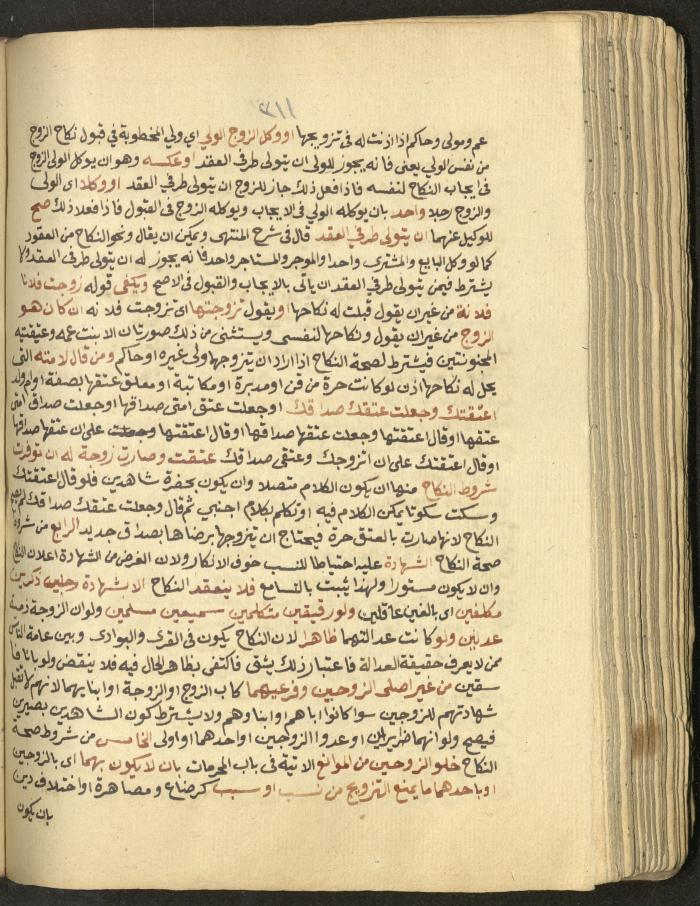 ٣١١
عم ومولى وحاكم اذا اذنت له فى تزويجها او وكل الزوج الولي اي ولي المخطوبة في قبول نكاح الزوج
من نفس الولي يعنى فانه يجوز للولى ان يتولى طرفي العقد او عكسه وهو ان يوكل الولي الزوج
فى ايجاب النكاح لنفسه فاذا فعل ذلك جاز للزوج ان يتولى طرفي العقد او وكلا اى الولى
والزوج رجلا واحد بان يوكله الولي فى الايجاب ويوكله الزوج فى القبول فاذا فعلا ذلك صح
للوكيل عنهما ان يتولى طرفي العقد قال فى شرح المنتهى ويمكن ان يقال ونحو النكاح من العقود
كما لو وكل البايع والمشترى واحدا والموجر والمستاجر واحدا فانه يجوز له ان يتولى طرفى العقد ولا
يشترط فيمن يتولى طرفي العقد ان ياتى بالايجاب والقبول فى الاصح ويكفى قوله زوجت فلانا
فلانة من غير ان يقول قبلت له نكاحها او يقول تزوجتها اى تزوجت فلانه ان كان هو
الزوج من غير ان يقول ونكاحها لنفسى ويستثنى من ذلك صورتان الابنت عمه وعتيقته
المجنونتين فيشترط لصحة النكاح اذا اراد ان يتزوجها ولى غيره او حاكم ومن قال لامته التى
يحل له نكاحها اذن لو كانت حرة من قن او مدبرة او مكاتبة او معلق عتقها بصفة او ام ولد
اعتقتك وجعلت عتقك صداقك او جعلت عتق امتى صداقها او جعلت صداق امتى
عتقها او قال اعتقتها وجعلت عتقها صداقها او قال اعتقتها على ان عتقها صداقها
او قال اعتقتك على ان اتزوجك وعتقى صداقك عتقت وصارت زوجة له ان توفرت
شروط النكاح منها ان يكون الكلام متصلا وان يكون بحضرة شاهدين فلو قال اعتقتك
وسكت سكوتا يمكن الكلام فيه او تكلم بكلام اجنبي ثم قال وجعلت عتقك صداقك لم يصح
النكاح لانها صارت بالعتق حرة فيحتاج ان يتزوجها برضاها بصداق جديد الرابع من شروط
صحة النكاح الشهادة عليه احتياطا للنسب خوف الانكار ولان الغرض من الشهادة اعلان النكاح
وان لا يكون مستورا ولهذا يثبت بالتسامع فلا ينعقد النكاح الا بشهادة رجلين ذكرين
مكلفين اى بالغين عاقلين ولو رقيقين متكلمين سميعين مسلمين ولو ان الزوجة ذمية
عدلين ولو كانت عدالتهما ظاهرا لان النكاح يكون فى القرى والبوادى وبين عامة الناس
ممن لا يعرف حقيقة العدالة فاعتبار ذلك يشق فاكتفى بظاهر الحال فيه فلا ينقض ولو بانا فا
سقين من غير اصلى الزوجين وفرعيهما كاب الزوج او الزوجة او ابنايهما لانهم لا تقبل
شهادتهم للزوجين سوا كانوا اباهم او ابناوهم ولا يشترط كون الشاهدين بصيرين
فيصح ولو انهما ضريرين او عدوا الزوجين او احدهما او اولى الخامس من شروط صحة
النكاح خلو الزوجين من الموانع الاتية فى باب المحرمات بان لا يكون بهما اى بالزوجين
او باحدهما ما يمنع التزويج من نسب او سبب كرضاع ومصاهرة او اختلاف دين
بان يكون